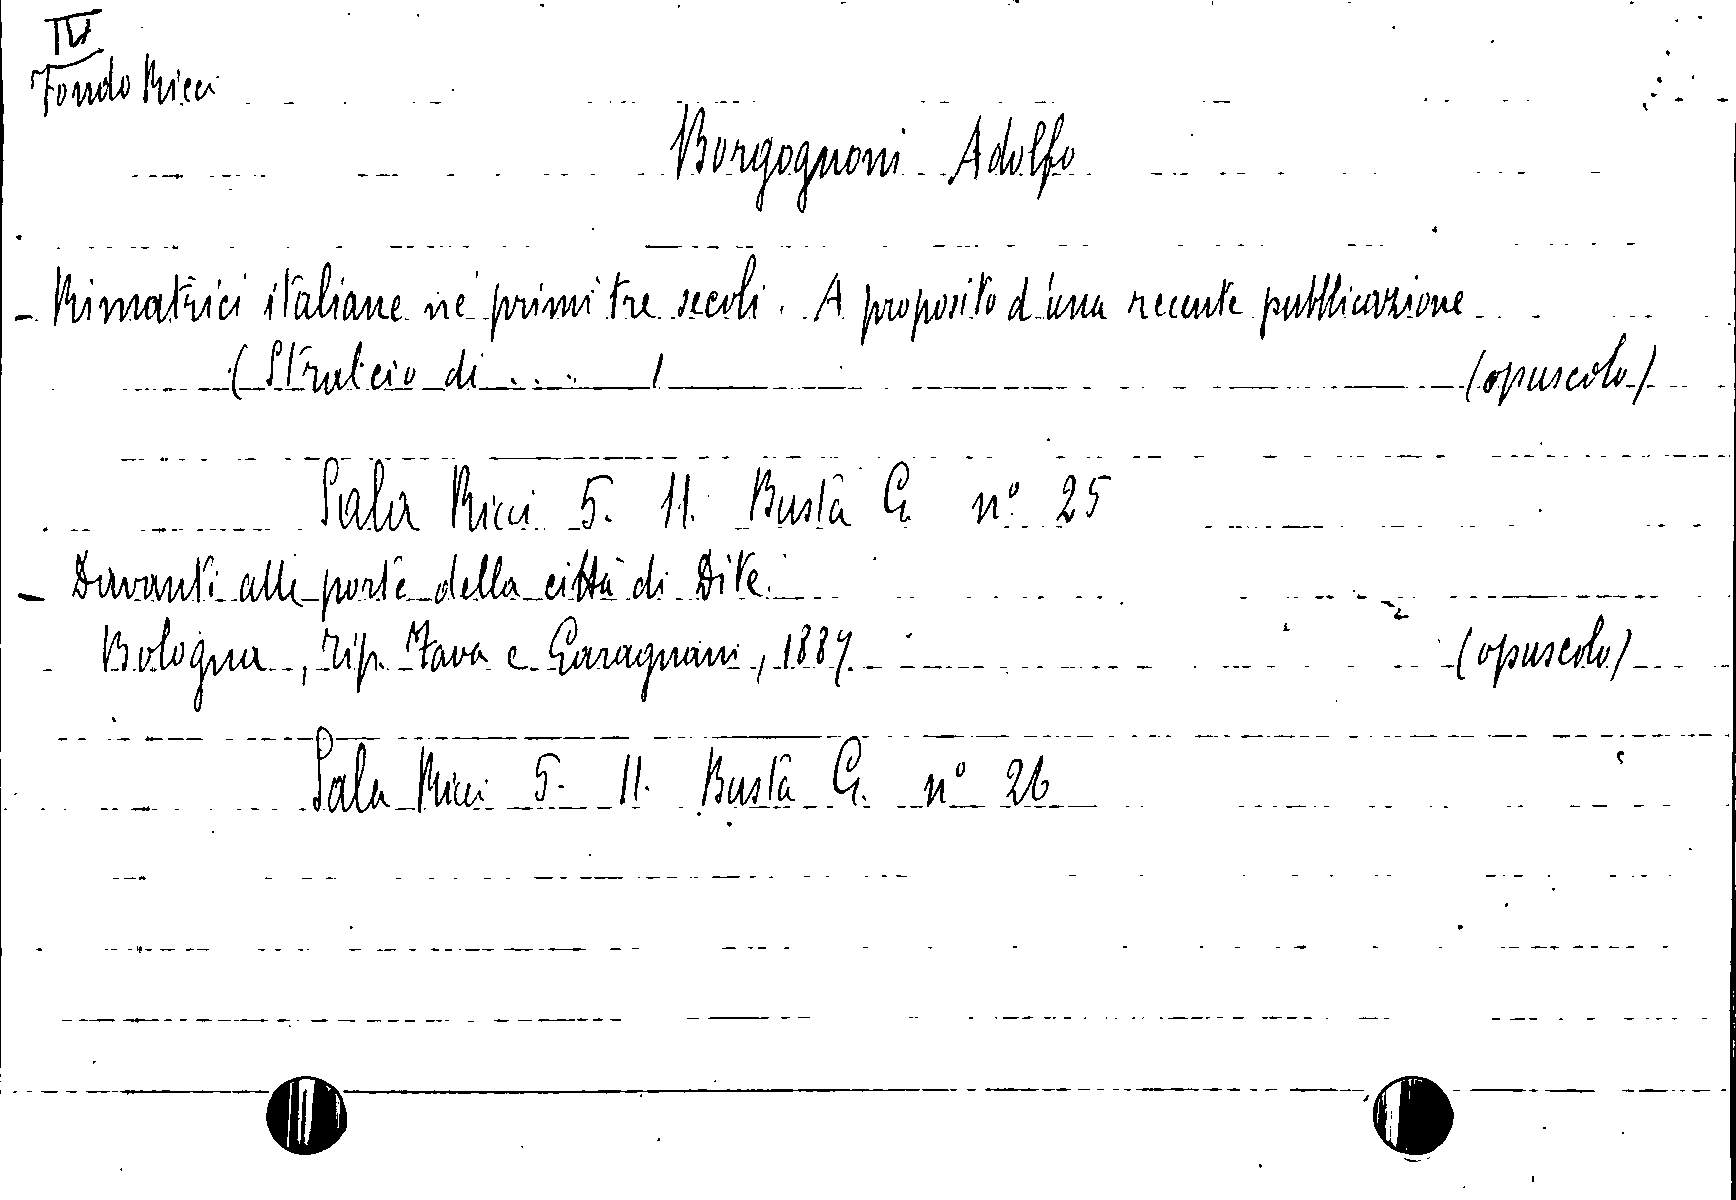 IV
Fondo Ricci
Borgognoni Adolfo
- Rimatrici italiane ne' primi tre secoli. A proposito d'una recente pubblicazione
(Stralcio di .... ) (opuscolo)
Sala Ricci 5. 11. Busta G. n° 25
- Davanti alle porte della città di Dite.
Bologna, Tip. Fava e Garagnani, 1887 (opuscolo)
Sala Ricci 5. 11. Busta G. n° 26